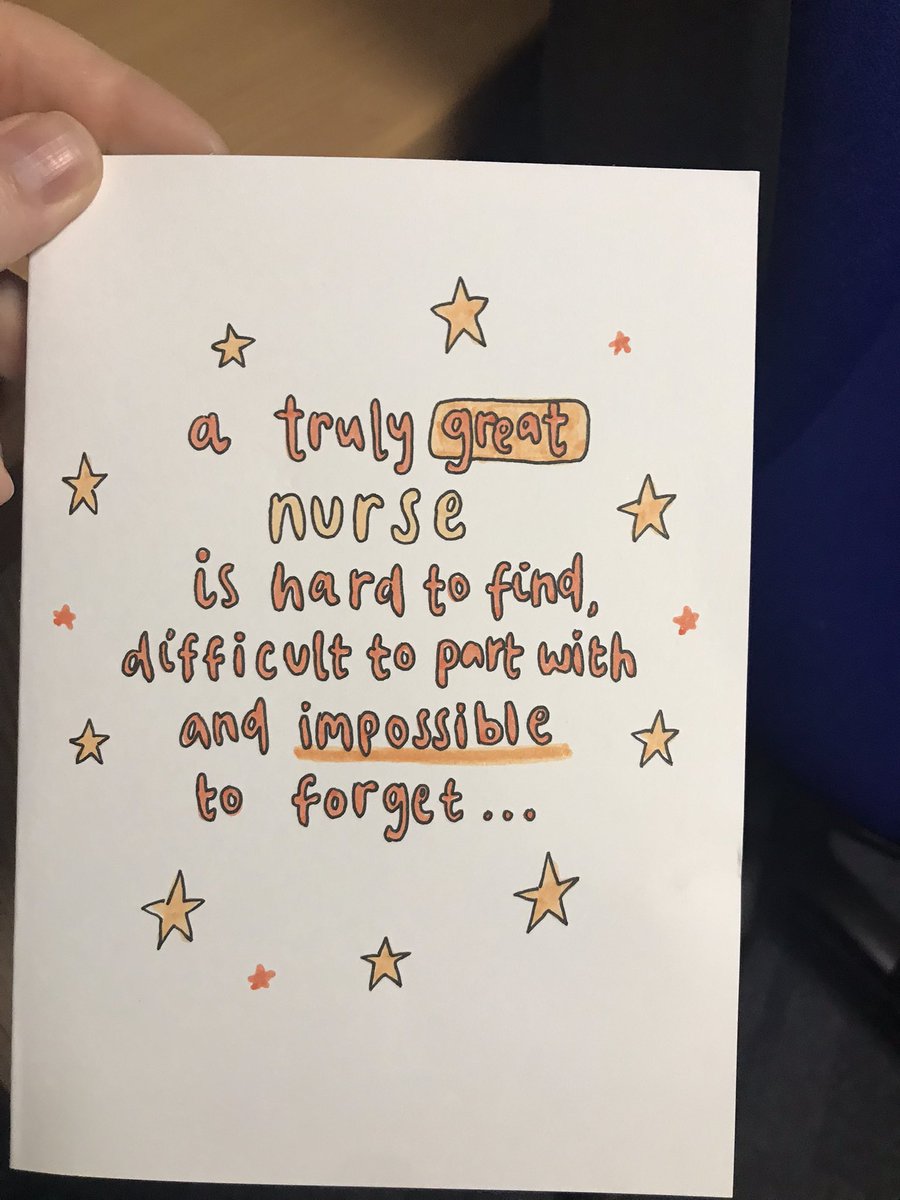 a truly great
nurse
is hard to find,
difficult to part with
and impossible
to forget...